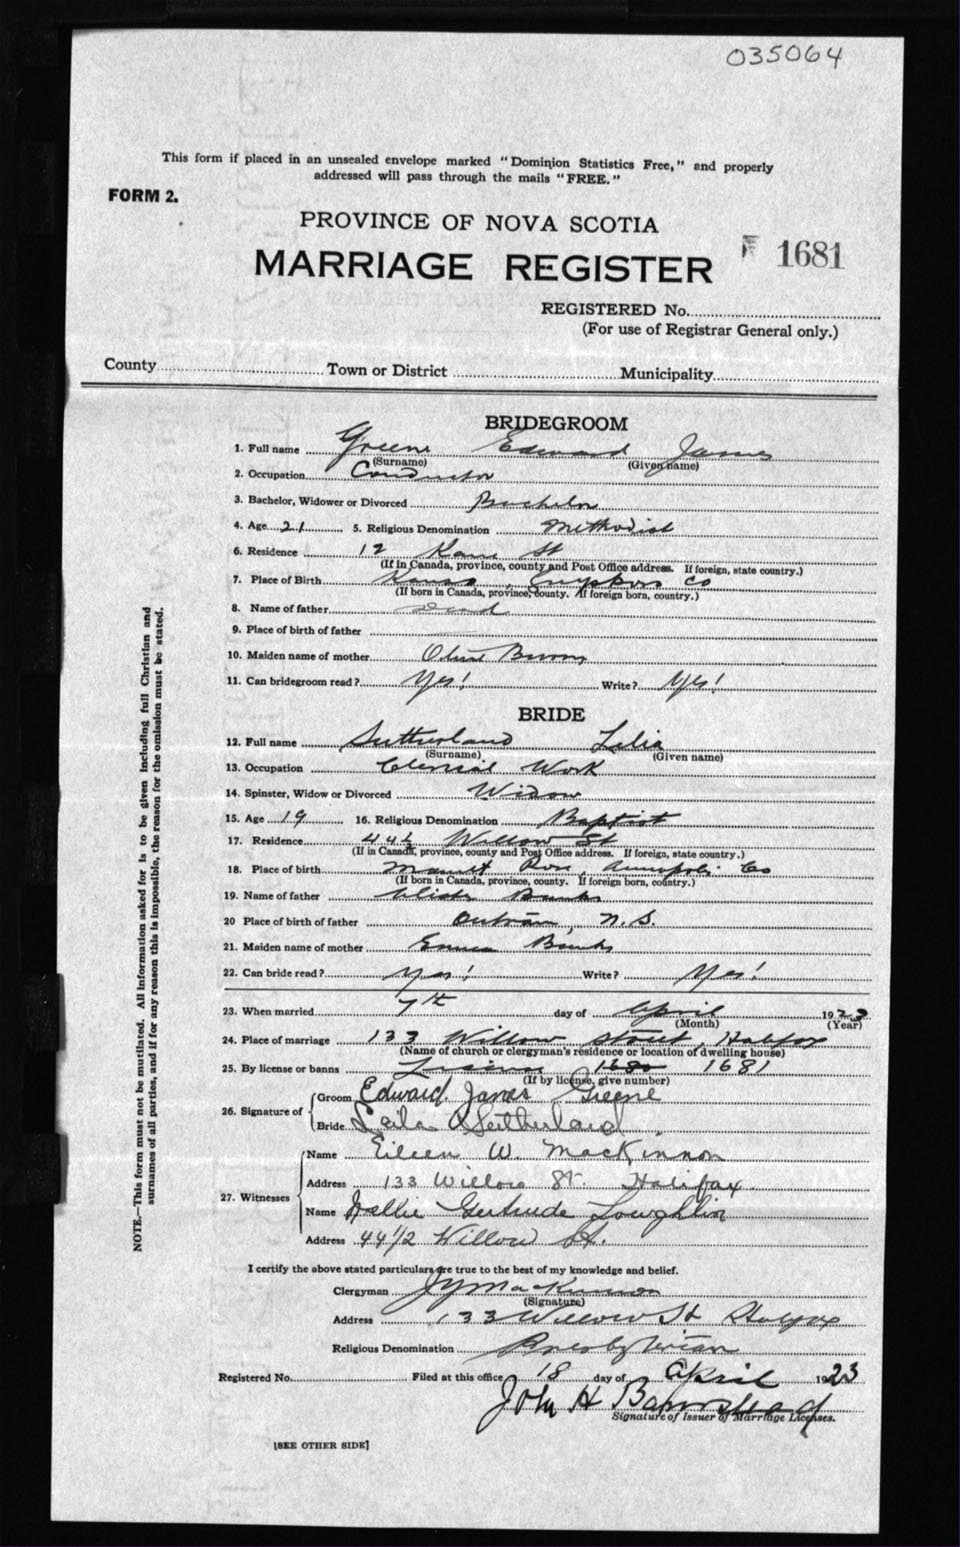 035064
This form if placed in an unsealed envelope marked "Dominion Statistics Free," and properly
addressed will pass through the mails "FREE."
FORM 2.
PROVINCE OF NOVA SCOTIA
MARRIAGE REGISTER
1681
REGISTERED No.
(For use of Registrar General only.)
County Town or District Municipality
BRIDEGROOM
1. Full name Greene Edward James
(Surname) (Given name)
2. Occupation Conductor
3. Bachelor, Widower or Divorced Bachelor
4. Age 21 5. Religious Denomination Methodist
6. Residence 12 Kane St
(If in Canada, province, county and Post Office address. If foreign, state country.)
7. Place of Birth Co
(If born in Canada, province, county. If foreign born, country.)
8. Name of father Dead
9. Place of birth of father
10. Maiden name of mother Olive
11. Can bridegroom read? Yes! Write? Yes!
BRIDE
12. Full name Sutherland Lelia
(Surname) (Given name)
13. Occupation Clerical Work
14. Spinster, Widow or Divorced Widow
15. Age 19 16. Religious Denomination Baptist
17. Residence 44½ Willow St
(If in Canada, province, county and Post Office address. If foreign, state country.)
18. Place of birth Annapolis Co
(If born in Canada, province, county. If foreign born, country.)
19. Name of father Banks
20 Place of birth of father Outram, N.S.
21. Maiden name of mother Emma Banks
22. Can bride read? Yes! Write? Yes!
23. When married 7th day of April 1923
(Month) (Year)
24. Place of marriage 133 Willow Street, Halifax
(Name of church or clergyman's residence or location of dwelling house)
25. By license or banns License 1680 1681
(If by license, give number)
26. Signature of Groom Edward James Greene
Bride Leila Sutherland
27. Witnesses
Name Eileen W. MacKinnon
Address 133 Willow St. Halifax
Name Nellie Gertrude Loughlin
Address 44½ Willow St.
I certify the above stated particulars are true to the best of my knowledge and belief.
Clergyman MacKinnon
(Signature)
Address 133 Willow St Halifax
Religious Denomination Presbyterian
Registered No. Filed at this office 18 day of April 1923
John H Barnstead
Signature of Issuer of Marriage Licenses.
[SEE OTHER SIDE]
NOTE.—This form must not be mutilated. All information asked for is to be given including full Christian and
surnames of all parties, and if for any reason this is impossible, the reason for the omission must be stated.